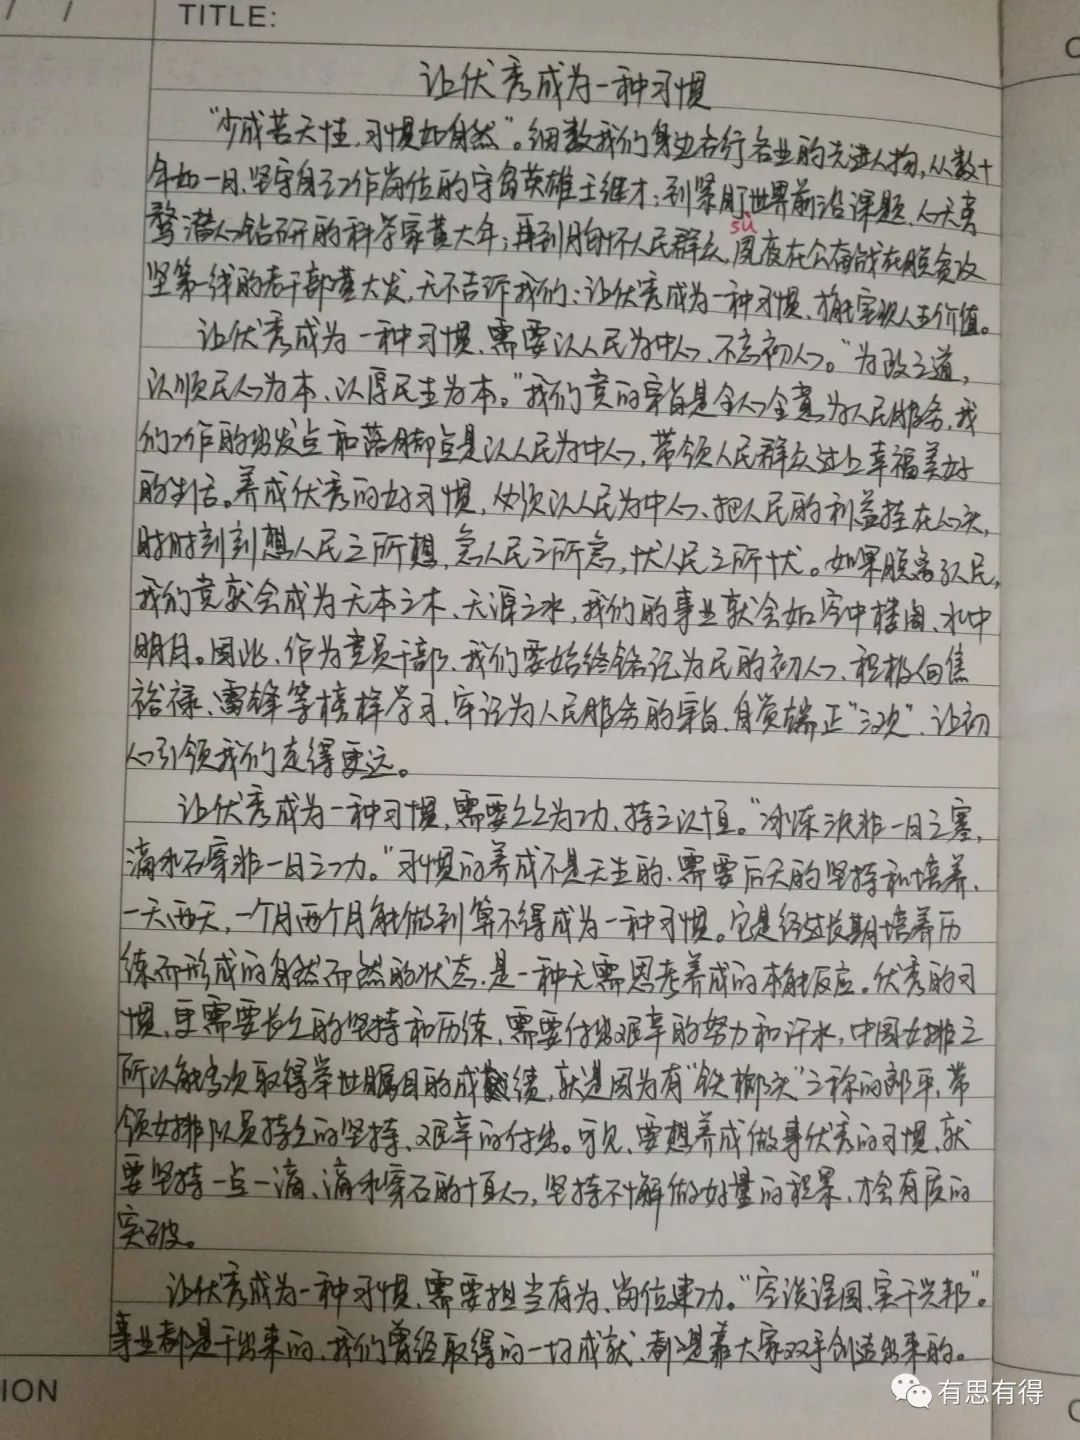 TITLE:
让优秀成为一种习惯
“少成若天性，习惯如自然”。细数我们身边各行各业的先进人物，从数十
年如一日、坚守自己工作岗位的守岛英雄王继才；到紧盯世界前沿课题、心无旁
骛潜心钻研的科学家黄大年；再到胸怀人民群众，夙夜在公奋战在脱贫攻
sù
坚第一线的老干部黄大发，无不告诉我们：让优秀成为一种习惯、才能实现人生价值。
让优秀成为一种习惯、需要以人民为中心、不忘初心。“为政之道，
以顺民心为本、以厚民生为本。”我们党的宗旨是全心全意为人民服务，我
们工作的出发点和落脚点是以人民为中心，带领人民群众过上幸福美好
的生活。养成优秀的好习惯，必须以人民为中心、把人民的利益挂在心头，
时时刻刻想人民之所想，急人民之所急，忧人民之所忧。如果脱离了人民，
我们党就会成为无本之木、无源之水，我们的事业就会如空中楼阁、水中
明月。因此、作为党员干部、我们要始终铭记为民的初心、积极向焦
裕禄、雷锋等榜样学习、牢记为人民服务的宗旨、自觉端正“三观”、让初
心引领我们走得更远。
让优秀成为一种习惯，需要久久为功、持之以恒。“冰冻三尺非一日之寒，
滴水石穿非一日之功。”习惯的养成不是天生的、需要后天的坚持和培养、
一天两天，一个月两个月能做到算不得成为一种习惯。它是经过长期培养历
练而形成的自然而然的状态、是一种无需思考养成的本能反应。优秀的习
惯、更需要长久的坚持和历练、需要付出艰辛的努力和汗水，中国女排之
所以能多次取得举世瞩目的成绩，就是因为有“铁榔头”之称的郎平、带
领女排队员持久的坚持、艰辛的付出。可见、要想养成做事优秀的习惯、就
要坚持一点一滴、滴水穿石的恒心，坚持不懈做好量的积累、才会有质的
突破。
让优秀成为一种习惯、需要担当有为、岗位建功。“空谈误国、实干兴邦”。
事业都是干出来的、我们曾经取得的一切成就、都是靠大家双手创造出来的。
ION
有思有得